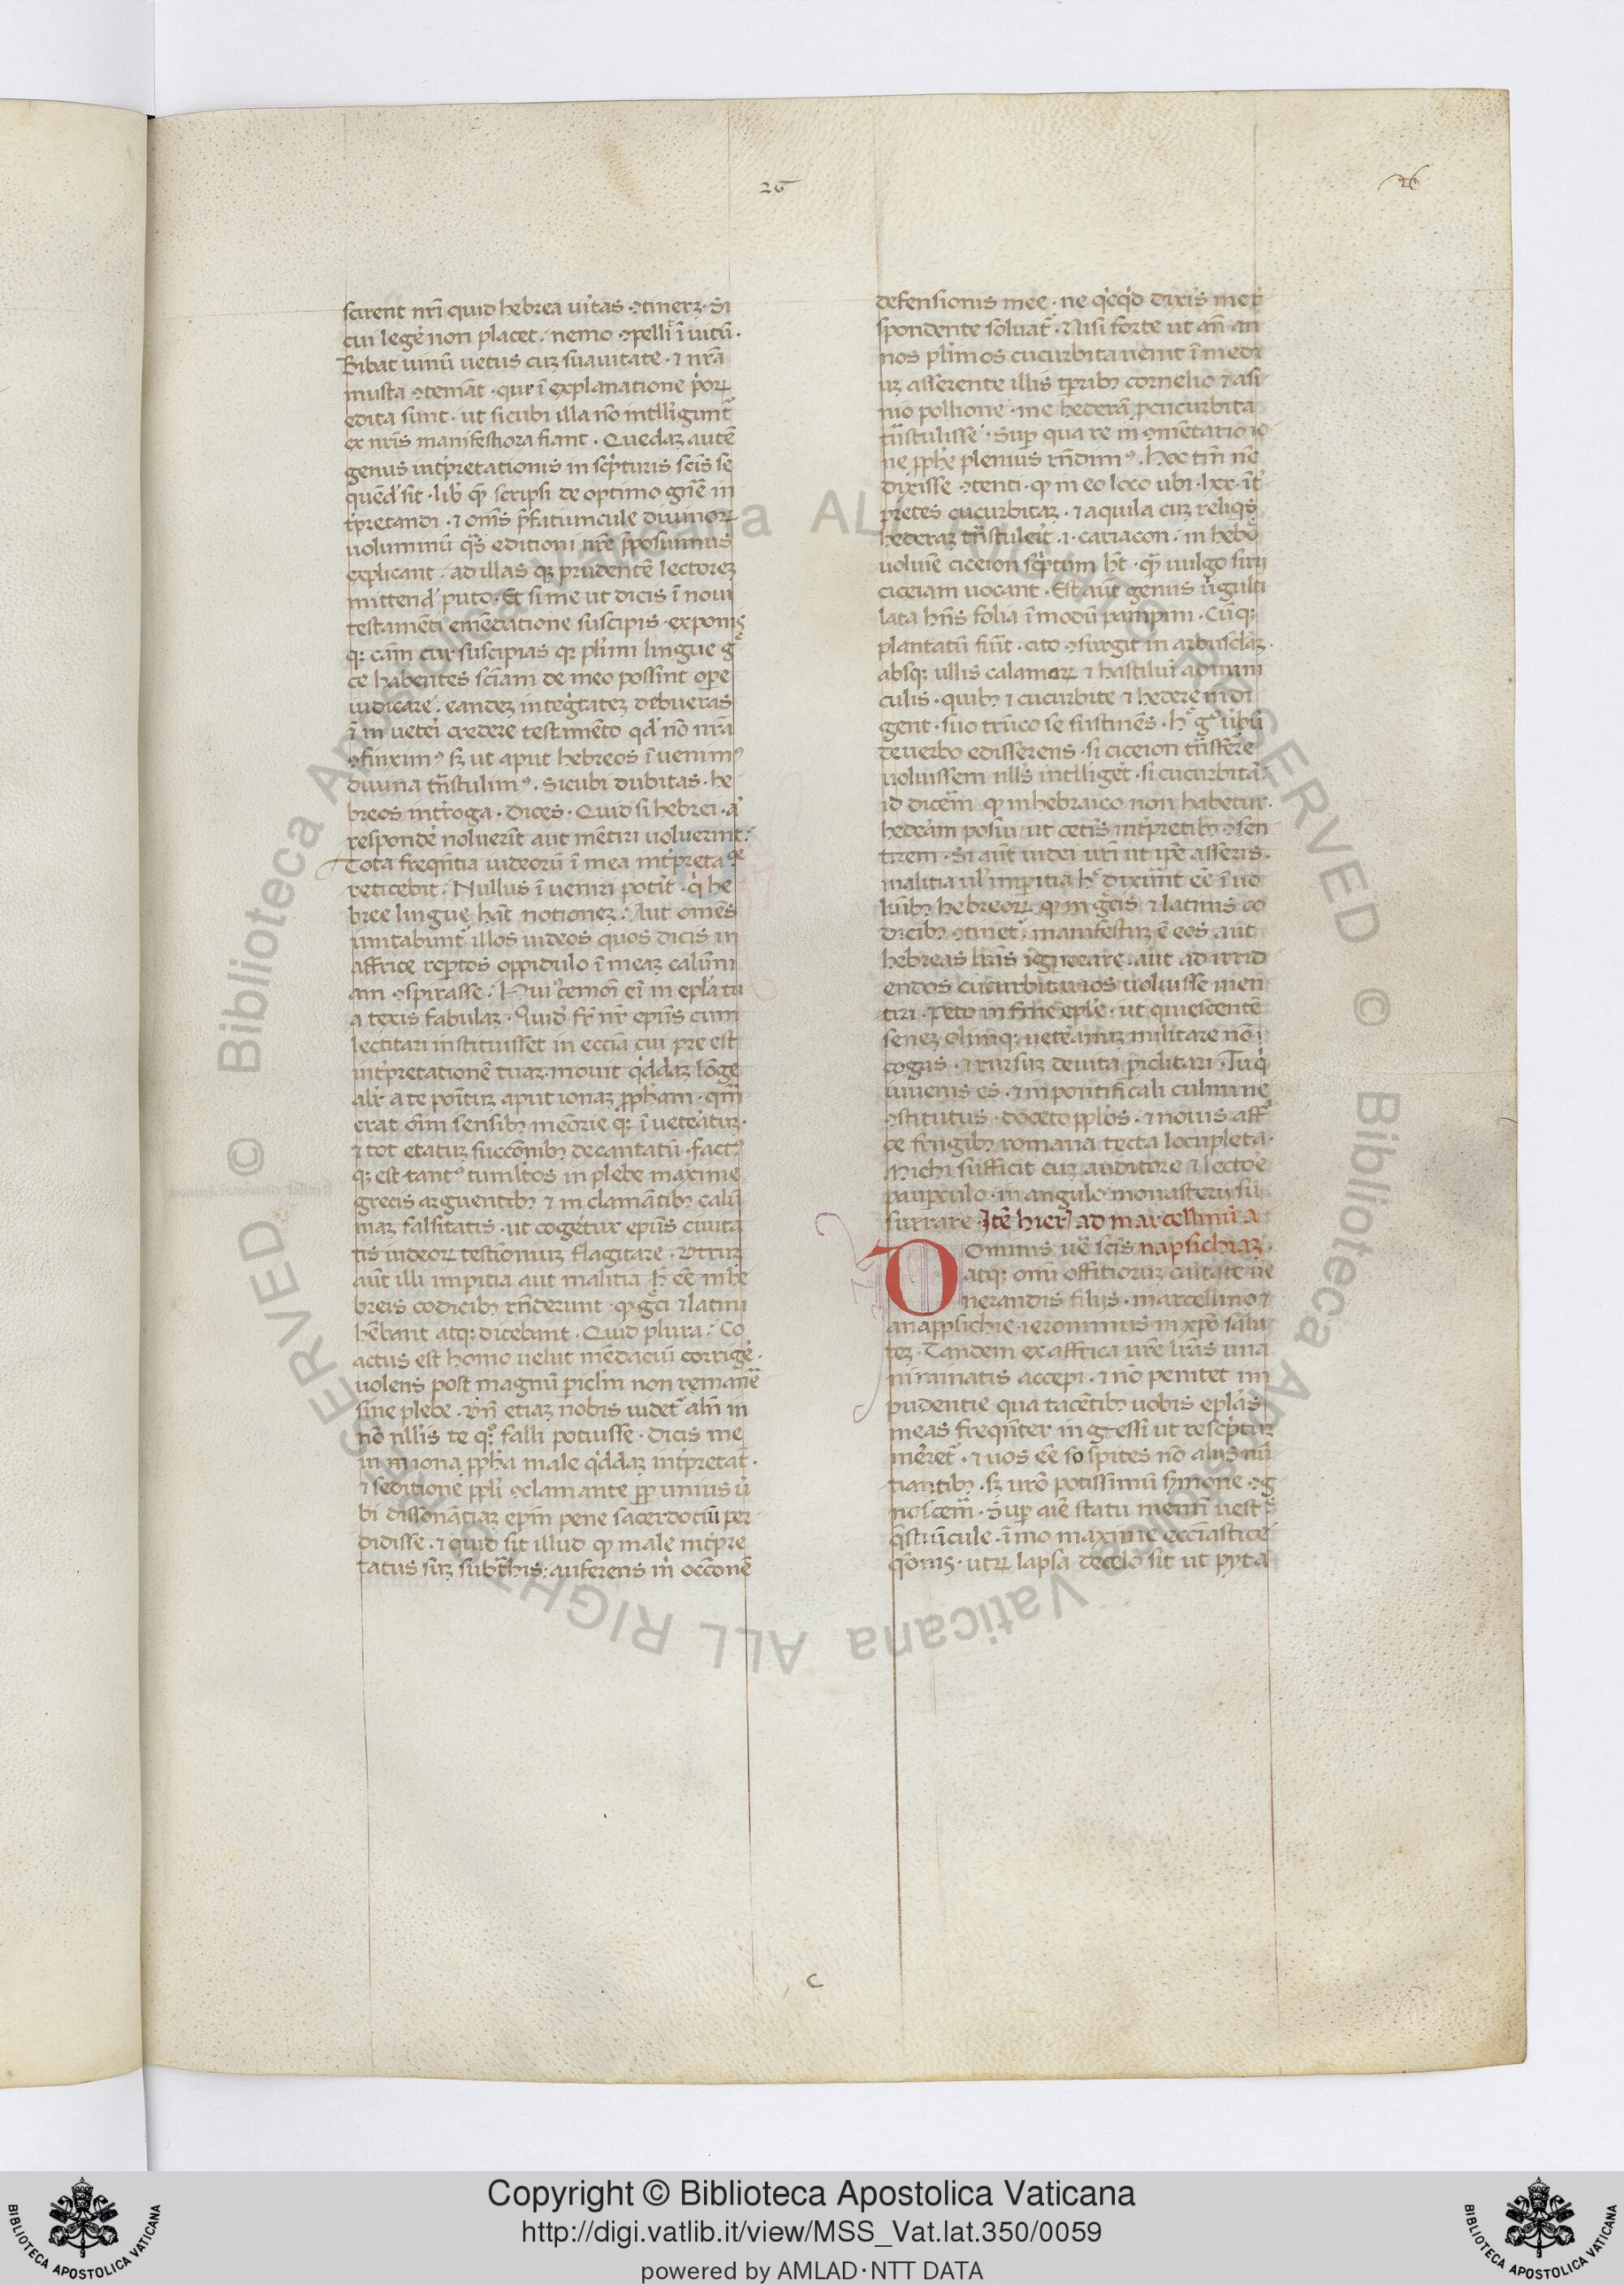 26
26
scirent nr̄i quid hebrea u'itas ꝯtinerꝫ · Si
cui lege' non placet · nemo ꝯpelli ī uitū ·
Bibat uinū uetus cuꝫ suauitate · ⁊ nr̄a
musta ꝯtemāt · que ī explanatione p'oꝝ
edita sunt · ut sicubi illa nō intlligunt̄
ex nr̄is manifestiora fiant · Quedaꝫ autē
genus int'pretationis in sc'pturis scīs se
quēd' sit · lib' quē scripsi de optimo gn̄e in
t'pretandi · ⁊ om̄s p̄fatiuncule diuinoꝝ
uoluminū q̄s editioni nr̄e p̄posuimus
explicant · ad illas qꝫ prudentē lectoreꝫ
mittend' puto · Et si me ut dicis ī noui
testamēti emēdatione suscipis · exponis
qꝫ cām cur suscipias qꝛ pl'imi lingue g̊
ce habentes sciām de meo possint ope
iudicare · eandeꝫ integ'tateꝫ debueras
ī in uetei' credere testamēto qd' nō nr̄a
ꝯfinximꝰ sꝫ ut aput hebreos īuenimꝰ
diuina tn̄stulimꝰ · Sicubi dubitas · he
breos int'roga · Dices · Quid si hebrei · a'
responde' noluerīt aut mētiri uoluerint ·
Tota freqn̄tia iudeorū ī mea int'preta ōe
reticebit · Nullus īueniri pot'it · q' he
bree lingue hāt notioneꝫ · Aut omēs
imitabunt̄ illos iudeos quos dicis in
affrice reptos oppidulo ī meaꝫ calūni
am ꝯspirasse · Hui'cemōi ei in epl'a tu
a texis fabulaꝫ · Quidā fr̄ nr̄ epūs cum
lectitari instituisset in eccīa cui pre est
int'pretationē tuaꝫ · mouit q'ddaꝫ lōge
alr̄ a te positꝫ aput ionaꝫ ꝓpham · qm̄
erat om̄ sensibꝫ meōrie qꝫ ī uete'atuꝫ ·
⁊ tot etatuꝫ succōnibꝫ decantatū · factꝰ
qꝫ est tantꝰ tumltꝰos in plebe maxime
grecis arguentibꝫ ⁊ in clamātibꝫ calū
niaꝫ falsitatis · ut coge'tur epūs ciuita
tis iudeoꝝ testimoniuꝫ flagitare · Vtruꝫ
aūt illi imp̱itia aut malitia h̄ eē in he
breis codicibꝫ rn̄derunt · qꝫ g̊ci ⁊ latini
hēbant atqꝫ dicebant · Quid plura · Co
actus est homo uelut mēdaciū corrige' ·
uolens post magnū p̱iclm̄ non remanē
sine plebe · Vn̄ etiaꝫ nobis uidet̄ alīn in
nō nll'is te qͦꝫ falli potuisse · Dicis me
in iona ꝓpha male q'ddaꝫ int'pretat' ·
⁊ seditione ppli ꝯclamante ꝓp unius u'
bi dissonātiaꝫ epm̄ pene sacerdotiū per
didisse · ⁊ quid sit illud qꝫ male int'pre
tatus suꝫ subt'his · auferens m̄ occōnē
defensionis mee · ne q'cq'd dixis me r̄
spondente soluat̄ · Nisi forte ut an̄ an
nos pl'imos cucurbita uenit ī medi
uꝫ asserente illis tp̱ribꝫ cornelio ⁊ asi
nio pollione · me hederā ꝓ cucurbita
tn̄stulisse · Sup̱ qua re in ꝯmētario io
ne ꝓphe plenius rn̄dimꝰ · Hoc tm̄ nē
dixisse ꝯtenti · qꝫ in eo loco ubi · lxx · īt'
pretes cucurbitaꝫ · ⁊ aquila cuꝫ reliqs̊
hederaꝫ tn̄stuleīt · i · cariacon · in heb'o
uolumīe ciceion sc'ptum hēt · q̄ uulgo siri
ciceiam uocant · Est aūt genus u'gulti
lata hn̄s folia ī modū pampini · Cūqꝫ
plantatū fiūt · cito ꝯsurgit in arbusclāꝫ ·
absqꝫ ullis calamoꝝ ⁊ hastiluī admini
culis · quibꝫ ⁊ cucurbite ⁊ hedere indi
gent · suo trūco se sustinēs · Hͦ gͦ u'bū
de uerbo edisserens · si ciceion tn̄sfere
uoluissem nll's intllige't · si cucurbitā ·
id dicēm qꝫ in hebraico non habetur ·
hedeām posui ut cetis int'pretibꝫ ꝯsen
tirem · Si aūt iudei ur̄i ut ipē asseris ·
malitia ul' imp̱itia hͦ dixūnt eē ī uo
lūibꝫ hebreoꝝ qꝫ in g̊cis ⁊ latinis co
dicibꝫ ꝯtinet̄ · manifestuꝫ ē eos aut
hebreas lr̄as ignorare · aut ad irrid
endos cucurbitarios uoluisse men
tiri · Peto in fine eplē · ut quiescentē
seneꝫ olimqꝫ uete'anuꝫ militare nō
cogas · ⁊ rursuꝫ de uita p̱iclitari · Tu q'
iuuenis es · ⁊ in pontificali culmine
ꝯstitutus · doceto ppl'os · ⁊ nouis aff'
ce frugibꝫ romana tecta locupleta ·
Michi sufficit cuꝫ auditore ⁊ lecto'e
paup̱culo · in angulo monasterij su
surrare · Itē hier' ad marcellinū a
Dominis ue' scīs napsichiaꝫ ·
atqꝫ omī offitioruꝫ caitate ue
nerandis filijs · marcellino ⁊
anapsichie · ieronimus in xp̄o salu
teꝫ · Tandem ex affrica ur̄e lr̄as una
nimitatis accepi · ⁊ nō penitet im
pudentie qua tacētibꝫ uobis epl'as
meas freqn̄ter ingessi ut resc'ptuꝫ
me'ret̄ · ⁊ uos eē sospites nō alijs nū
tiantibꝫ · sꝫ ur̄o potissimū s'mone ꝯg
noscem̄ · Sup̱ aīe statu memī uest'
q̄stiūcule · īmo maxime eccīastice
q̄onis · utꝝ lapsa de celo sit ut pyta
c
Copyright © Biblioteca Apostolica Vaticana
http://digi.vatlib.it/view/MSS_Vat.lat.350/0059
powered by AMLAD·NTT DATA
BIBLIOTECA APOSTOLICA VATICANA
BIBLIOTECA APOSTOLICA VATICANA